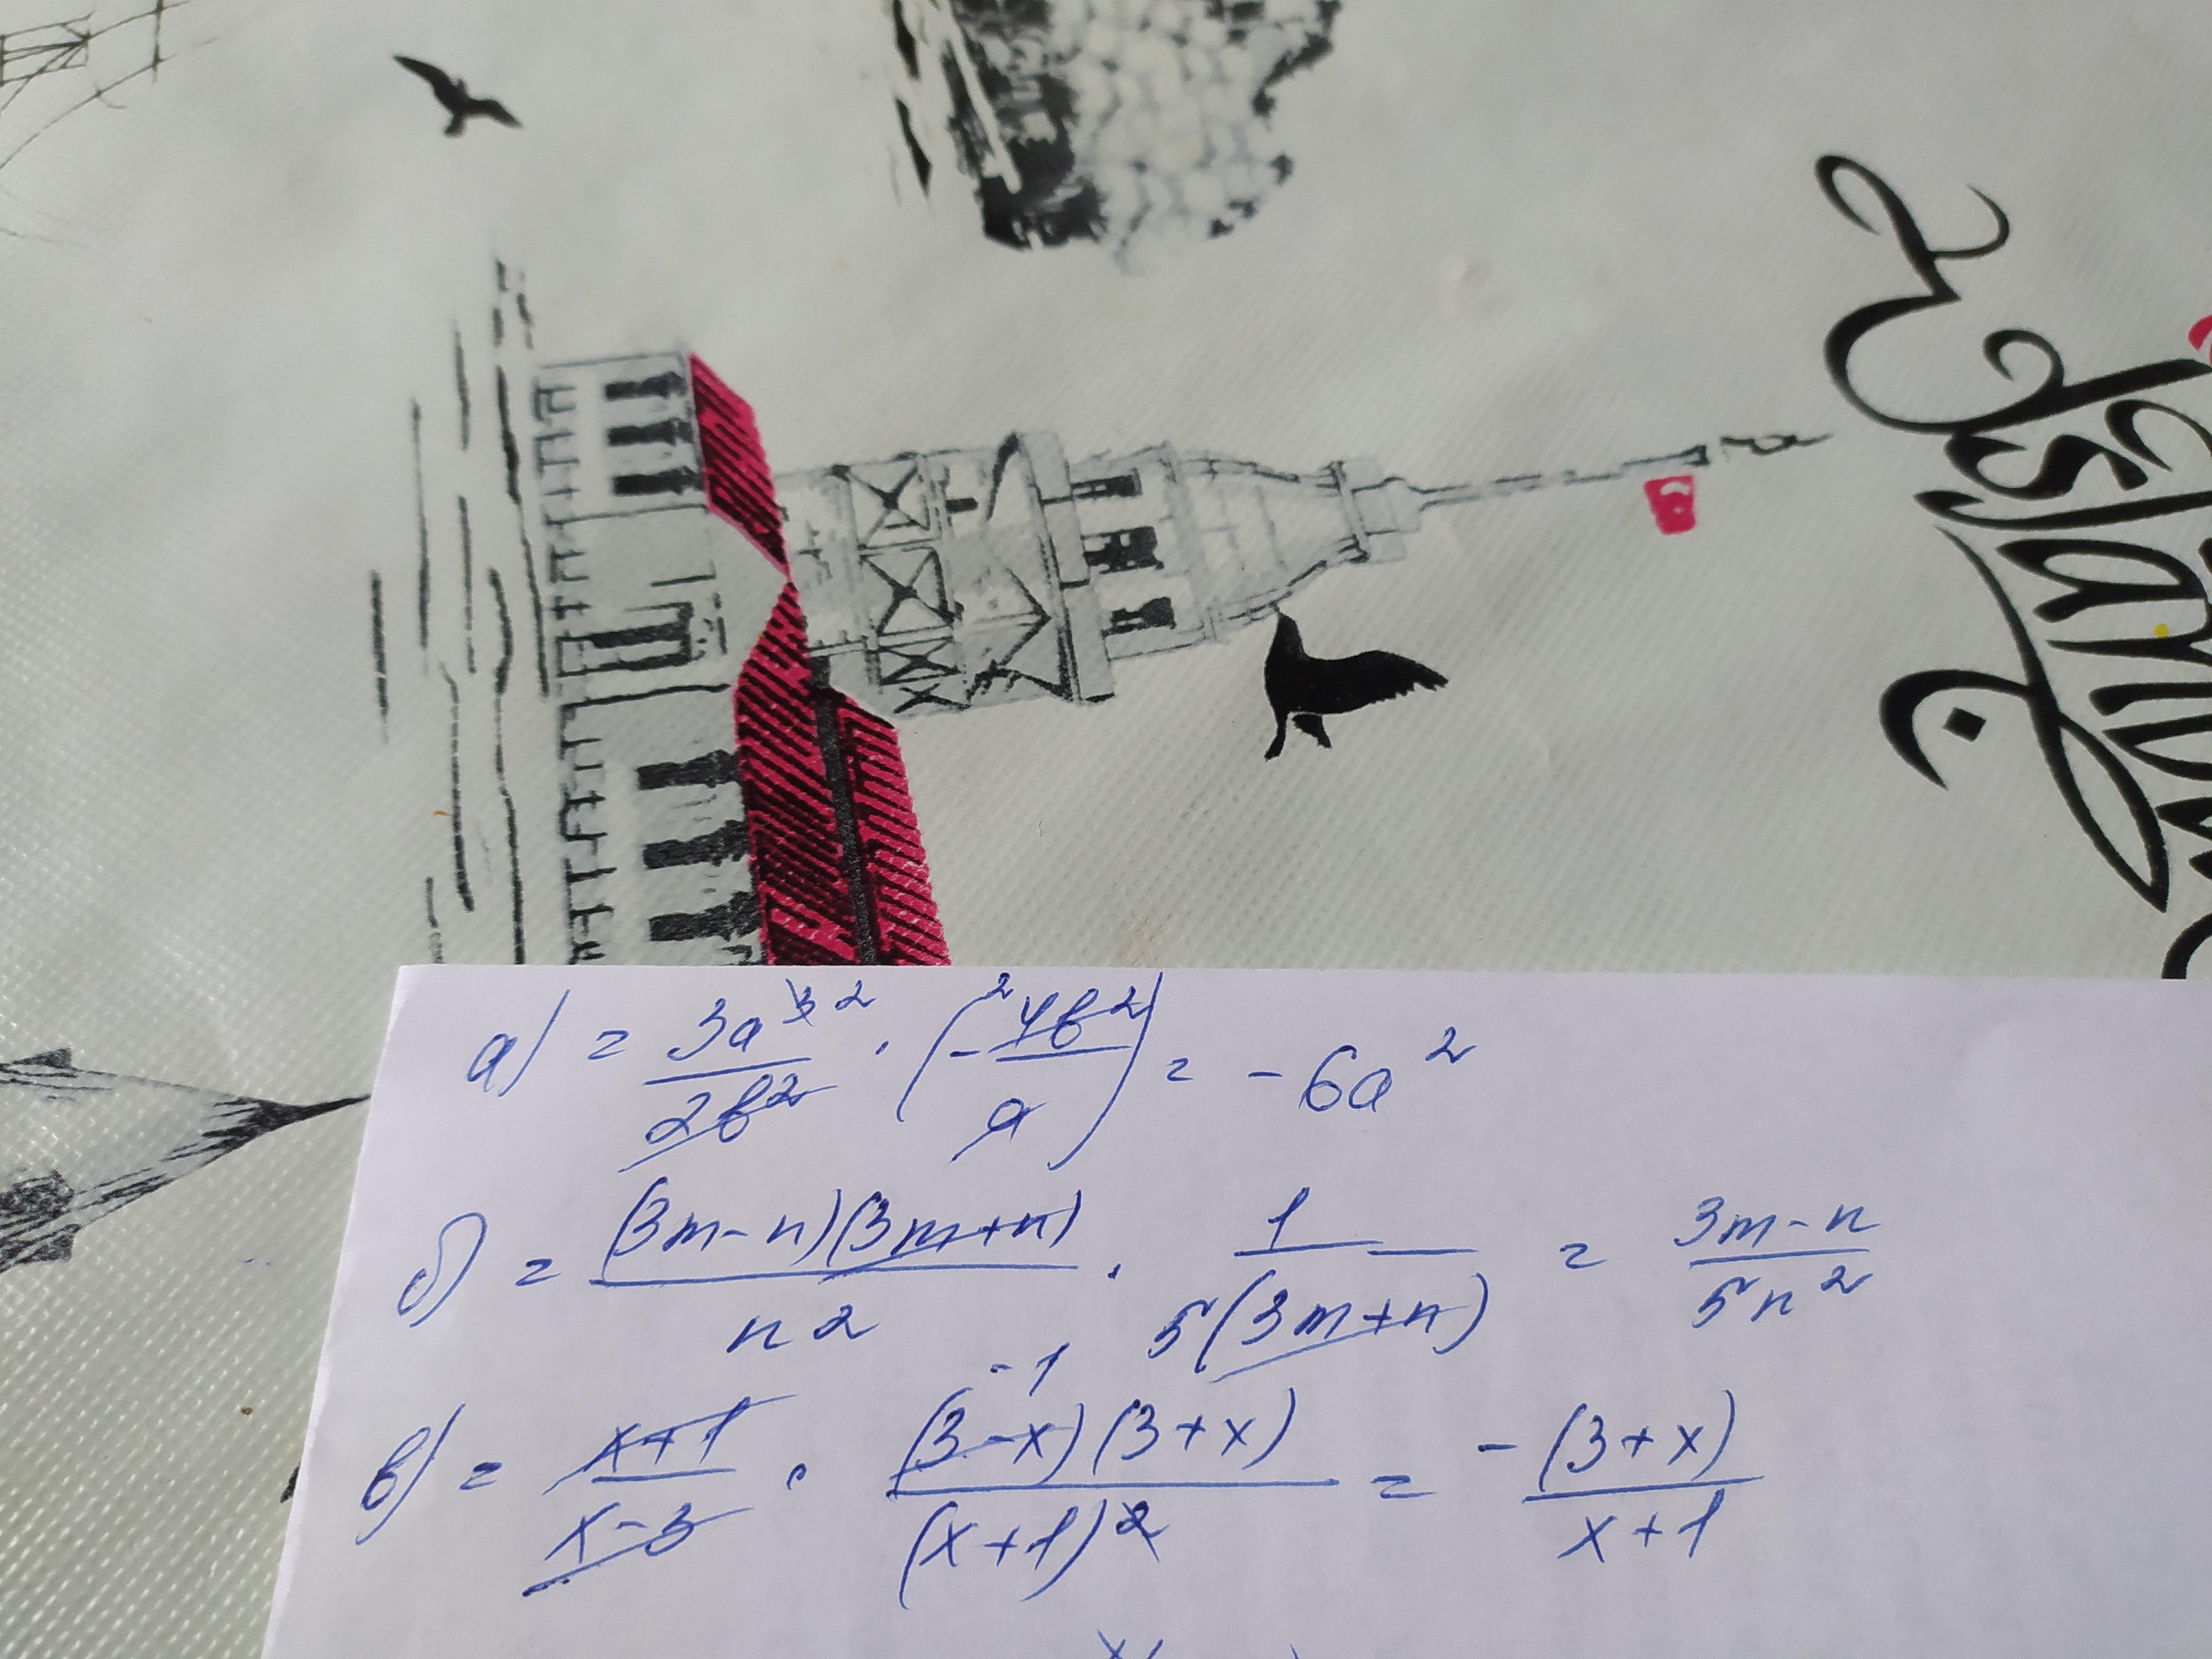 Istanbul
а) = 3a³ ² / 2b² · (- ² 4b² / a) = - 6a²
б) = (3m-n)(3m+n) / n² · 1 / 5(3m+n) = 3m-n / 5n²
в) = x+1 / x-3 · -1 (3-x)(3+x) / (x+1)² = -(3+x) / x+1